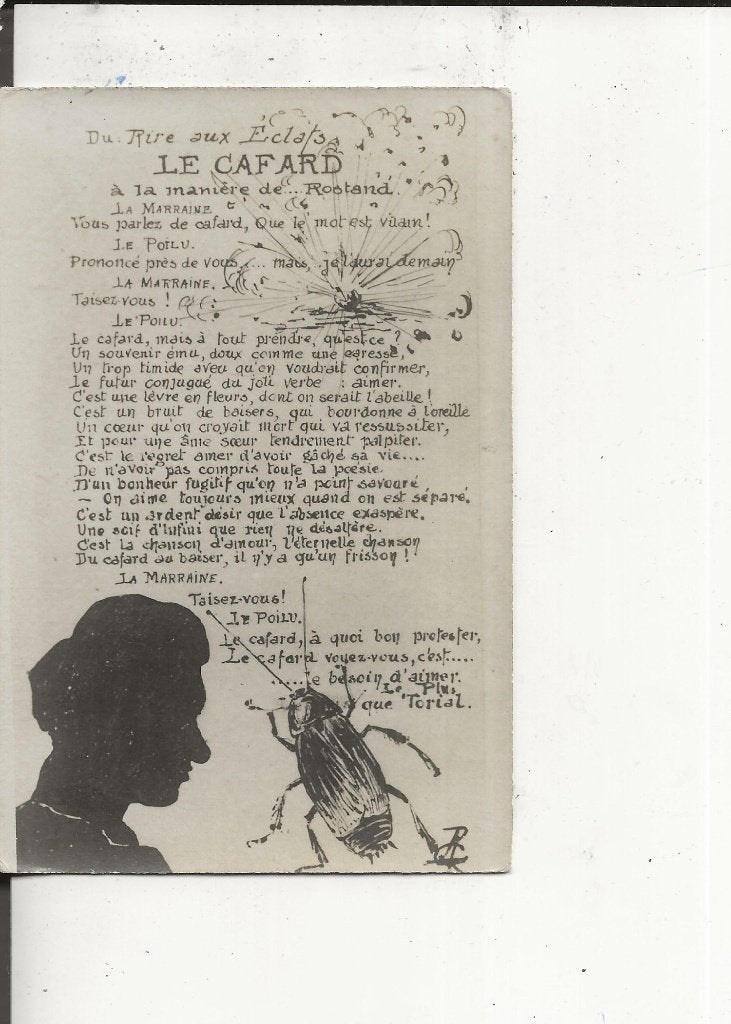 Du Rire aux Éclats
LE CAFARD
à la manière de... Rostand.
LA MARRAINE
Vous parlez de cafard, Que le mot est vilain!
LE POILU.
Prononcé près de vous..... mais.. je l'aurai demain
LA MARRAINE.
Taisez-vous!
LE POILU.
Le cafard, mais à tout prendre, qu'est ce?
Un souvenir ému, doux comme une caresse,
Un trop timide aveu qu'on voudrait confirmer,
Le futur conjugué du joli verbe: aimer.
C'est une lèvre en fleurs, dont on serait l'abeille!
C'est un bruit de baisers, qui bourdonne à l'oreille
Un cœur qu'on croyait mort qui va ressussiter,
Et pour une âme sœur tendrement palpiter.
C'est le regret amer d'avoir gâché sa vie....
De n'avoir pas compris toute la poésie
D'un bonheur fugitif qu'on n'a point savouré,
— On aime toujours mieux quand on est séparé.
C'est un ardent désir que l'absence exaspère.
Une soif d'infini que rien ne désaltère.
C'est la chanson d'amour, l'éternelle chanson
Du cafard au baiser, il n'y a qu'un frisson!
LA MARRAINE.
Taisez-vous!
LE POILU.
Le cafard, à quoi bon protester,
Le cafard voyez-vous, c'est.....
......le besoin d'aimer.
Le Plus
que Torial.